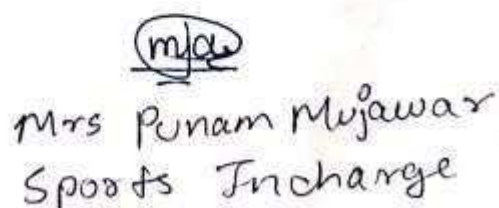 Mrs Punam Mujawar
Sports Incharge